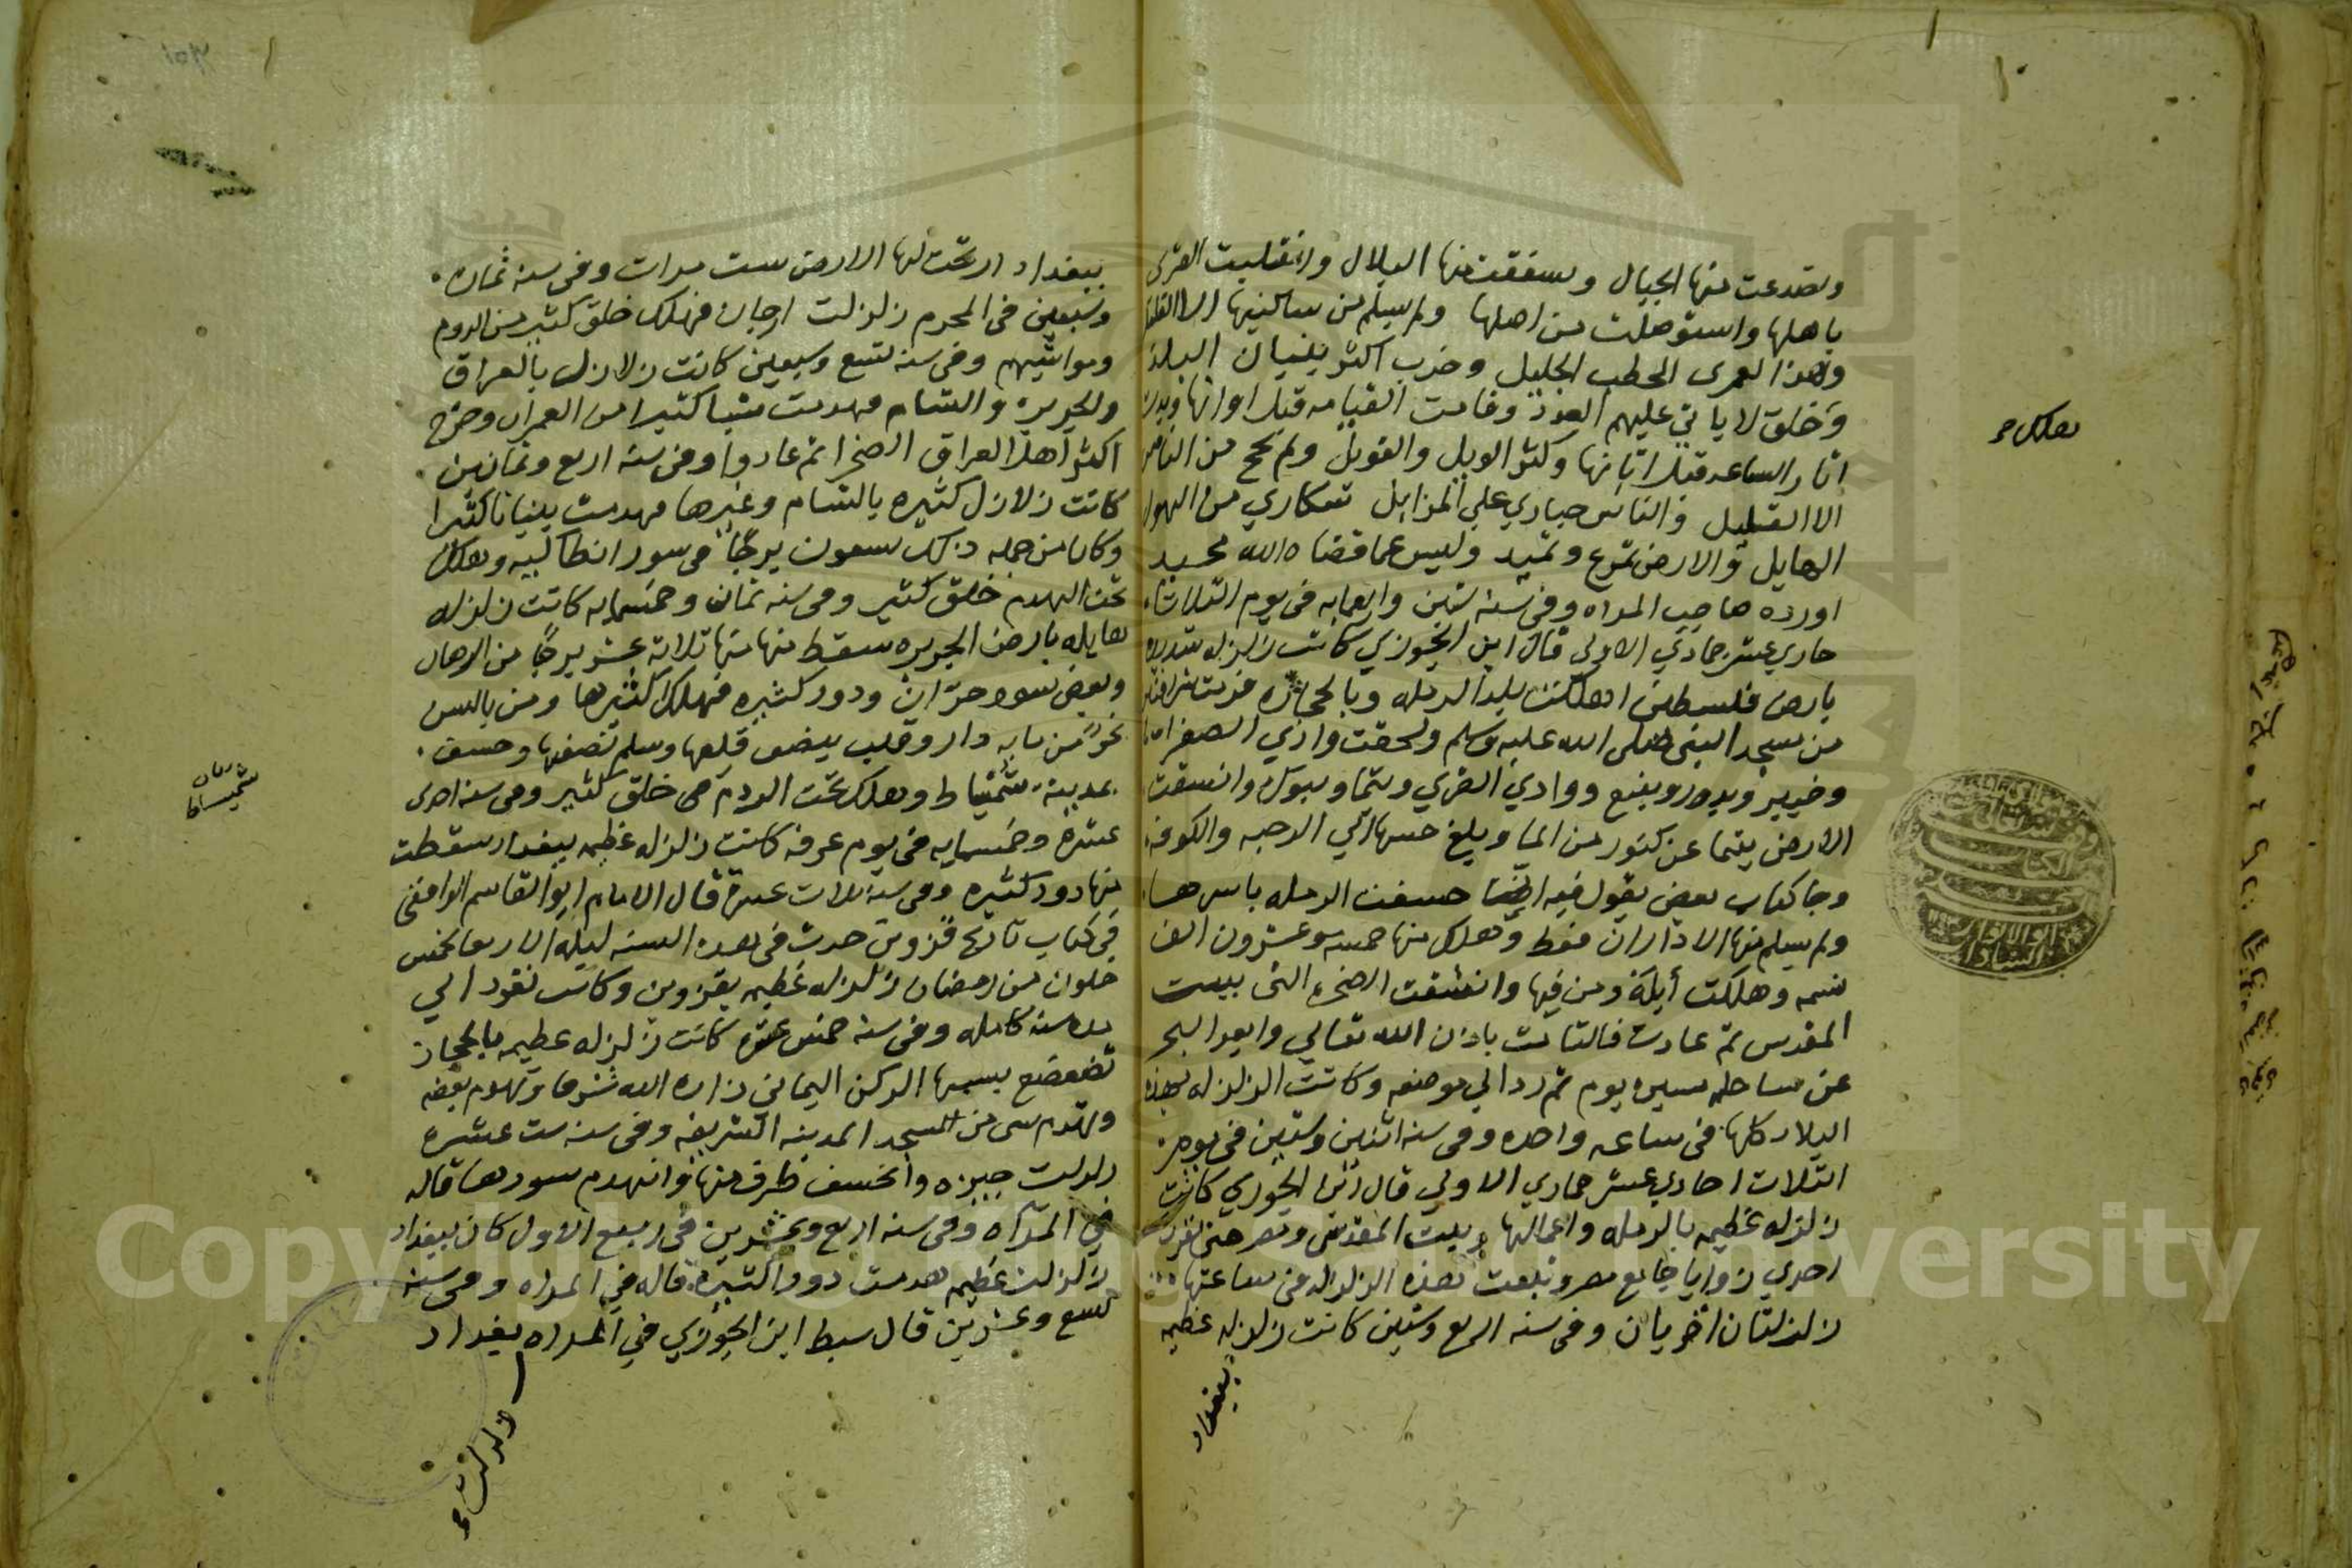 وتصدعت منها الجبال وسفقت منها البلال وانقلبت القرى
باهلها واستوصلت من اهلها ولم يسلم من ساكنيها الا القليل
وهذا لعمرى الخطب الجليل وخرب اكثر بنيان البلد
وخلق لا ياتي عليهم العدد وقامت القيامه قبل اوانها
اثار الساعه قبل اتيانها وكثر الويل والعويل ولم ينج من الناس
الا القليل والناس حياري على المزابل سكاري من الهول
الهايل والارض تموج وتميد وليس عما قضاه الله محيد
اورده صاحب المراه وفى سنة ستين واربعمايه فى يوم الثلاثاء
حادى عشر جمادي الاولى قال ابن الجوزي كانت زلزله شديده
بارض فلسطين اهلكت بلد الرمله وبالحجاز فرمت شرافتين
من مسجد النبى صلى الله عليه وسلم ولحقت وادي الصفرا
وخيبر وبدر وينبع ووادي القرى وتيما وتبوك وانشقت
الارض بتيما عن كنوز من المال وبلغ حسها الي الرحبه والكوفه
وجا كتاب بعض يقول فيه ايضا خسفت الرمله باسرها
ولم يسلم منها الا داران فقط وهلك منها خمسه وعشرون الف
نسمه وهلكت أيلة ومن فيها وانشقت الصخره التى ببيت
المقدس ثم عادت فالتامت باذن الله تعالي وابعد البحر
عن ساحله مسيره يوم ثم رد الي موضعه وكانت الزلزله بهذه
البلاد كلها فى ساعه واحده وفى سنه اثنين وستين فى يوم
الثلاث احادي عشر جمادي الاولي قال ابن الجوزي كانت
زلزله عظيمه بالرمله واعمالها وبيت المقدس ومصر حتى نفرت
احدي زوايا جامع مصر وتبعت هذه الزلزله فى ساعتها
زلزلتان اخريان وفى سنه اربع وستين كانت زلزله عظيمه
ببغداد
هلك
ببغداد ارتجت لها الارض ست مرات وفى سنه ثمان
وسبعين فى المحرم زلزلت ارجان فهلك خلق كثير من الروم
ومواشيهم وفى سنه تسع وسبعين كانت زلازل بالعراق
والجزيره والشام فهدمت شيا كثيرا من العمران وخرج
اكثر اهل العراق الصحرا ثم عادوا وفى سنه اربع وثمانين
كانت زلازل كثيره بالشام وغيرها فهدمت بنيانا كثيرا
وكان من جمله ذلك سعون برجا فى سور انطاكيه وهلك
تحت الهدم خلق كثير وفى سنه ثمان وخمسمايه كانت زلزله
هايله بارض الجزيره سقط منها منها ثلاثة عشر برجا من الرها
وبعض سور حران ودور كثيره فهلك اكثرها ومن بالس
نحوا من مايه دار وقلب بنصف قلعها وسلم نصفها وخسف
بمدينه شمشاط وهلك تحت الردم فى خلق كثير وفى سنه احدى
عشرة وخمسمايه فى يوم عرفه كانت زلزله عظيمه ببغداد سقطت
منها دور كثيره وفى سنة ثلاث عشرة قال الامام ابو القاسم الرافعى
في كتاب تاريخ قزوين حدث فى هذه السنه ليله الاربعا لخمس
خلون من رمضان زلزله عظيمه بقزوين وكانت تعود الي
مده سنه كامله وفى سنه خمس عشره كانت زلزله عظيمه بالحجاز
تضعضع بسببها الركن اليمانى زاده الله شرفا وتهدم بعضه
وتهدم شى من المسجد المدينه الشريفه وفى سنه ست عشره
زلزلت جيزه وانخسف طرف منها وانهدم سورها قاله
في المراه وفى سنه اربع وعشرين فى ربيع الاول كان ببغداد
زلزلت عظيمه هدمت دورا كثيره قاله في المراه وفى سنه
تسع وعشرين قال سبط ابن الجوزي في المراه ببغداد
زلزلت
شميساط
Copyright © King Saud University